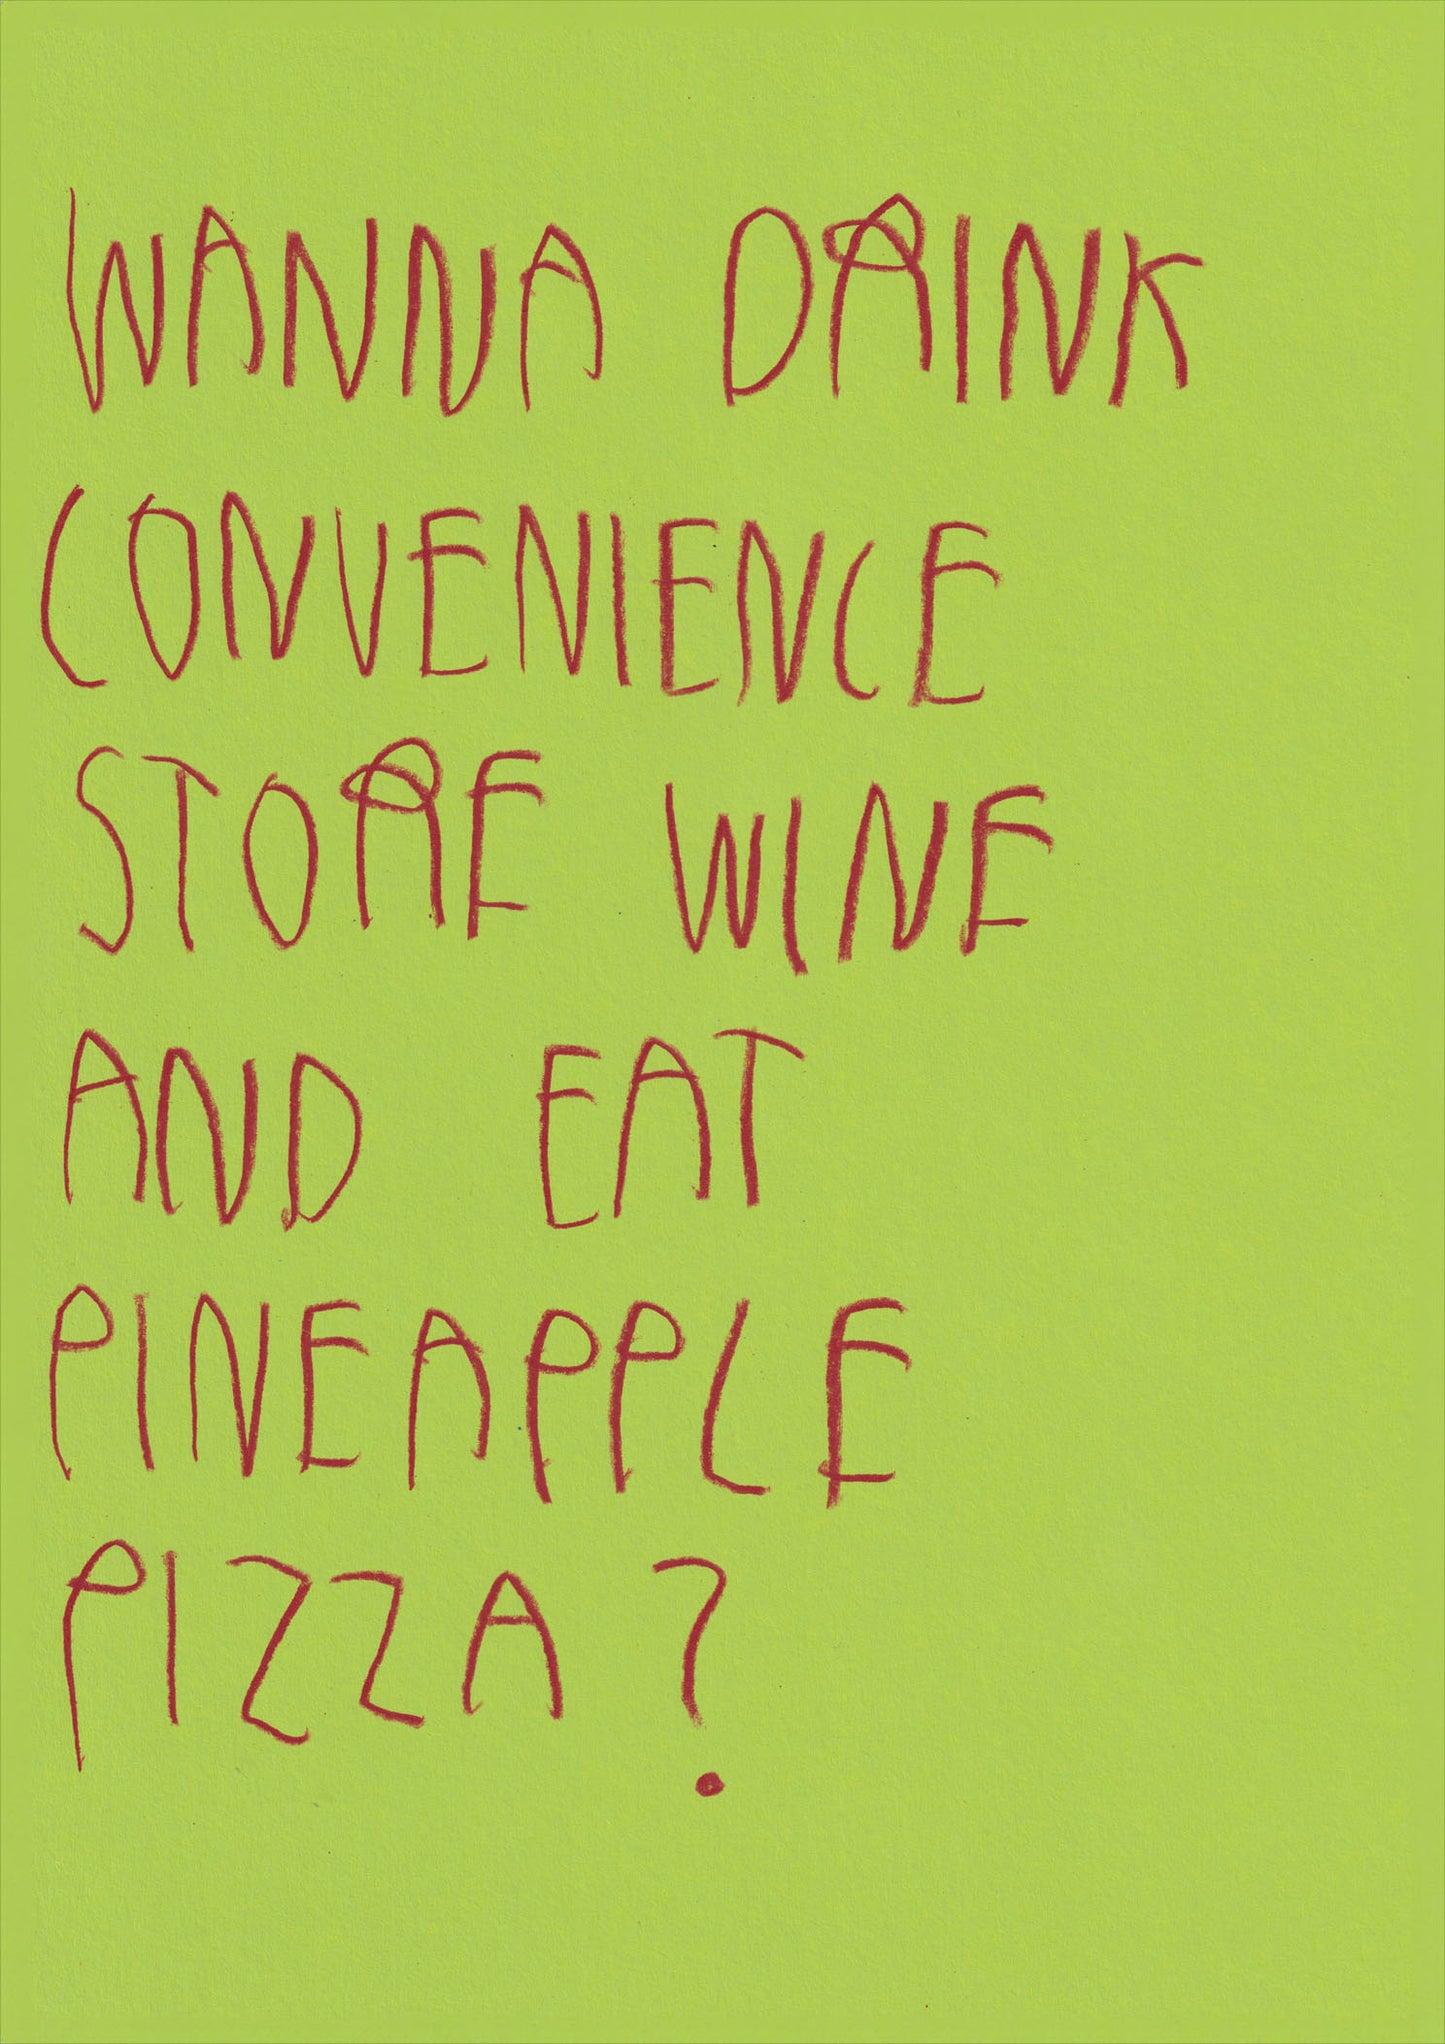 WANNA DRINK
CONVENIENCE
STORE WINE
AND EAT
PINEAPPLE
PIZZA?